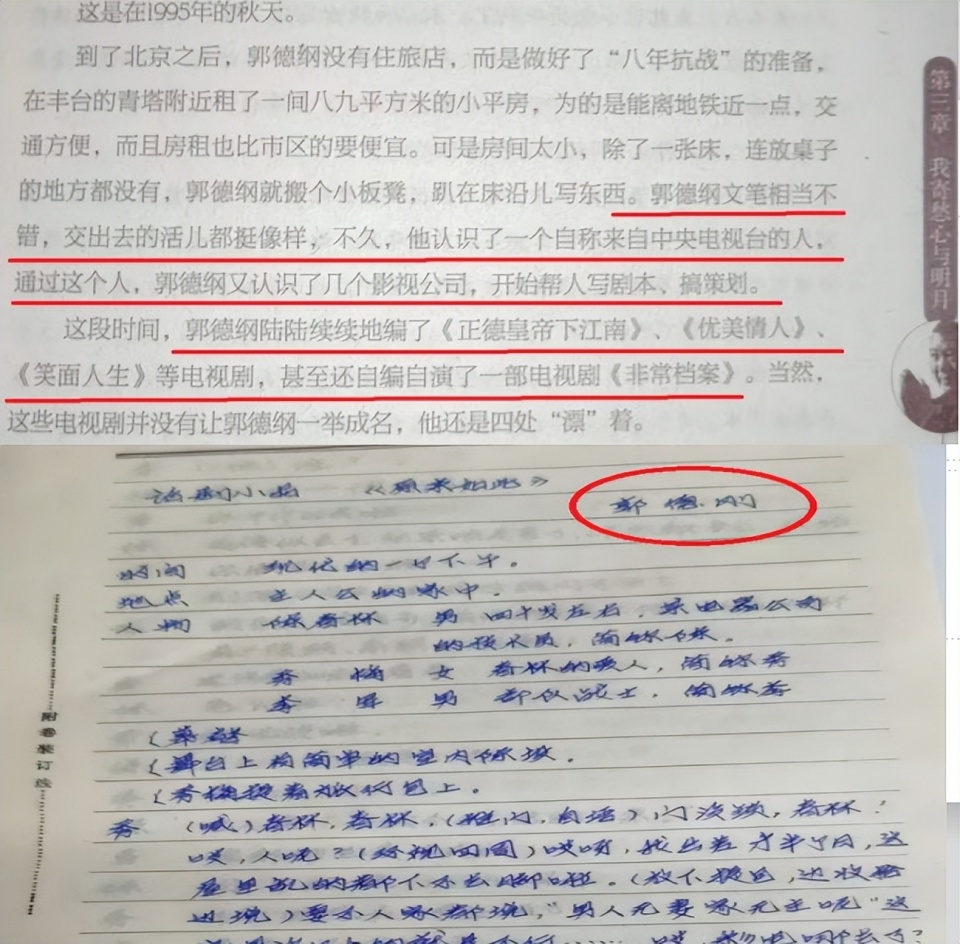 这是在1995年的秋天。
到了北京之后，郭德纲没有住旅店，而是做好了“八年抗战”的准备，
在丰台的青塔附近租了一间八九平方米的小平房，为的是能离地铁近一点，交
通方便，而且房租也比市区的要便宜。可是房间太小，除了一张床，连放桌子
的地方都没有，郭德纲就搬个小板凳，趴在床沿儿写东西。郭德纲文笔相当不
错，交出去的活儿都挺像样，不久，他认识了一个自称来自中央电视台的人，
通过这个人，郭德纲又认识了几个影视公司，开始帮人写剧本、搞策划。
这段时间，郭德纲陆陆续续地编了《正德皇帝下江南》、《优美情人》、
《笑面人生》等电视剧，甚至还自编自演了一部电视剧《非常档案》。当然，
这些电视剧并没有让郭德纲一举成名，他还是四处“漂”着。
第三章 我寄愁心与明月
话剧小品 《原来如此》
郭德刚
时间 现代的一日下午。
地点 主人公的家中。
人物 春怀 男 四十岁左右，某电器公司
的技术员，简称
秀梅 女 春怀的爱人，简称秀
男 部队战士，简称
（幕启
（舞台上有简单的室内陈设。
（秀梅提着旅行包上。
秀 （喊）春怀，春怀，（推门，自语）门没锁，春怀！
哎，人呢？（环视四周）哎呀，我出差才半个月，这
屋里乱的都下不去脚啦。（放下提包，边收拾
边说）要不人家都说，“男人无妻家无主呢”这
附卷装订线